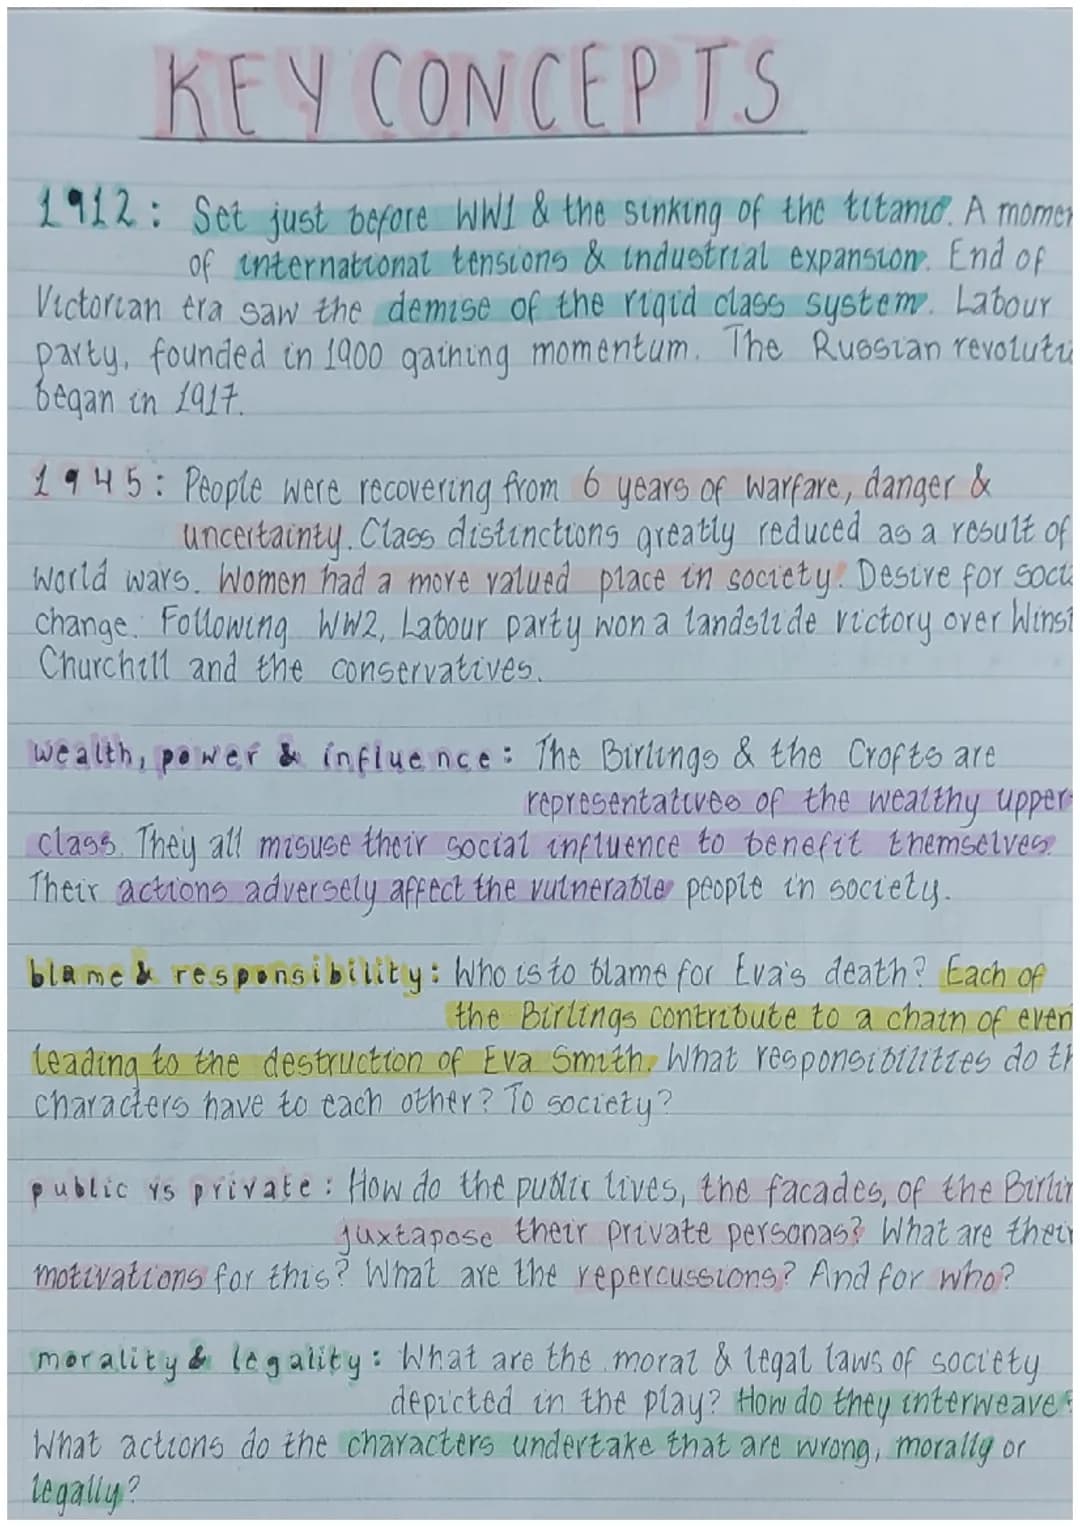 KEY CONCEPTS
1912: Set just before WW1 & the sinking of the titanic. A momen
of international tensions & industrial expansion. End of
Victorian era saw the demise of the rigid class system. Labour
party, founded in 1900 gaining momentum. The Russian revoluti
began in 1917.
1945: People were recovering from 6 years of warfare, danger &
uncertainty. Class distinctions greatly reduced as a result of
world wars. Women had a more valued place in society. Desire for socia
change. Following WW2, Labour party won a landslide victory over Winst
Churchill and the conservatives.
wealth, power & influence: The Birlings & the Crofts are
representatives of the wealthy upper-
class. They all misuse their social influence to benefit themselves.
Their actions adversely affect the vulnerable people in society.
blame & responsibility: Who is to blame for Eva's death? Each of
the Birlings contribute to a chain of even
leading to the destruction of Eva Smith. What responsibilities do th
characters have to each other? To society?
public vs private: How do the public lives, the facades, of the Birlin
juxtapose their private personas? What are their
motivations for this? What are the repercussions? And for who?
morality & legality: What are the moral & legal laws of society
depicted in the play? How do they interweave?
What actions do the characters undertake that are wrong, morally or
legally?